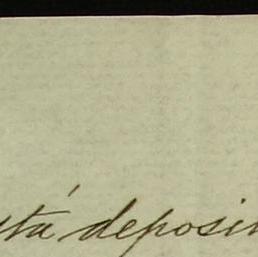 stá deposi